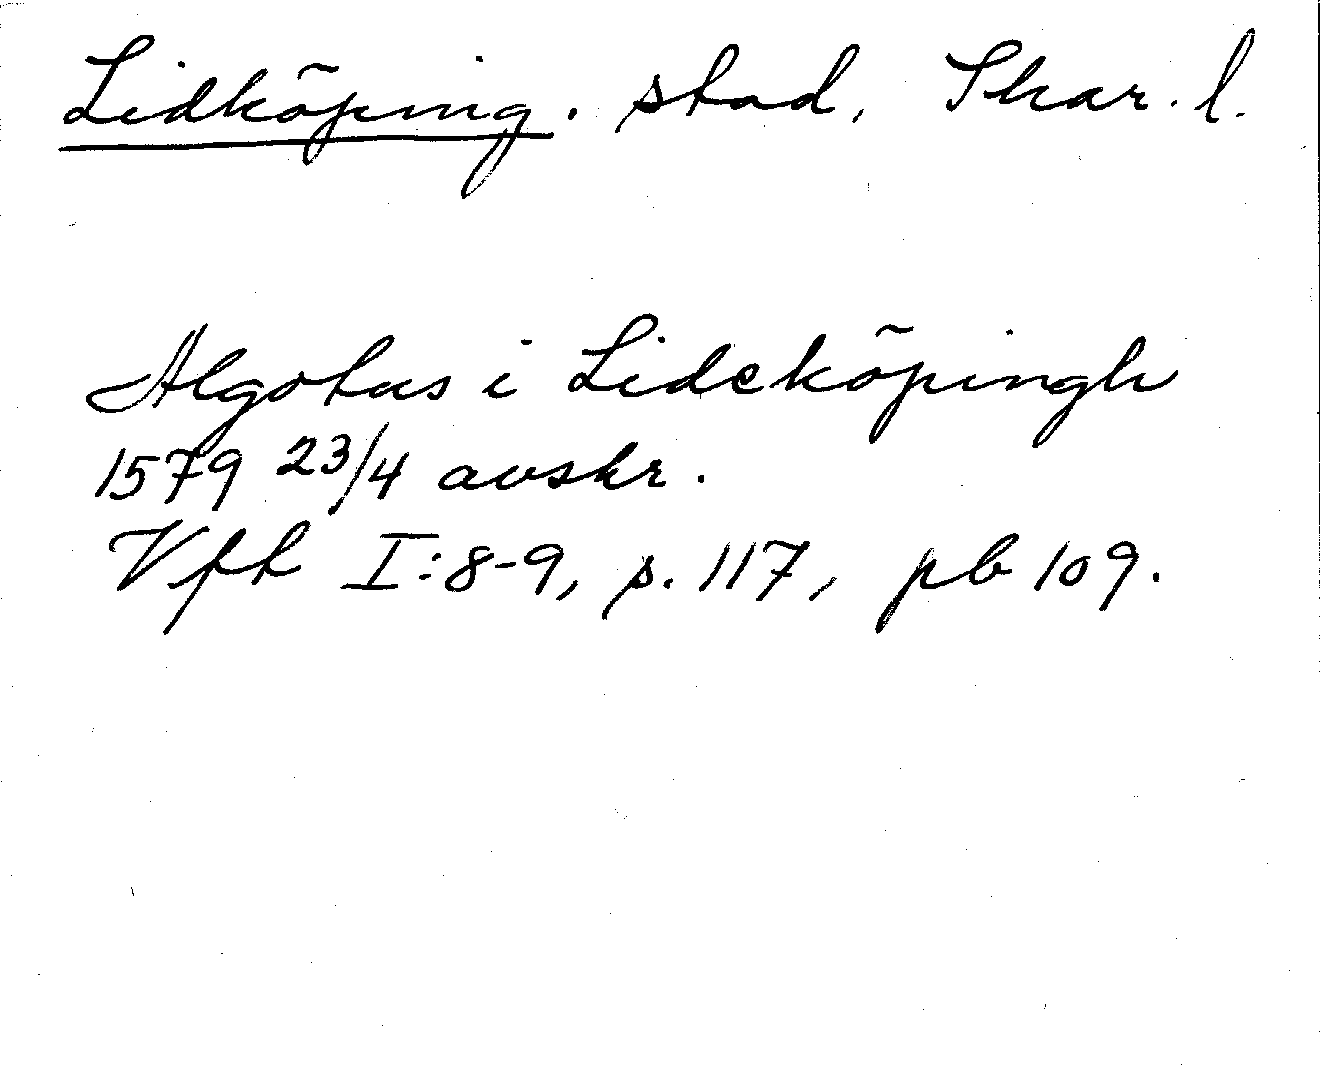 Lidköping. stad, Skar. l.
Algotus i Lideköpingh
1579 23/4 avskr.
Vfh I:8-9, s. 117, pb 109.